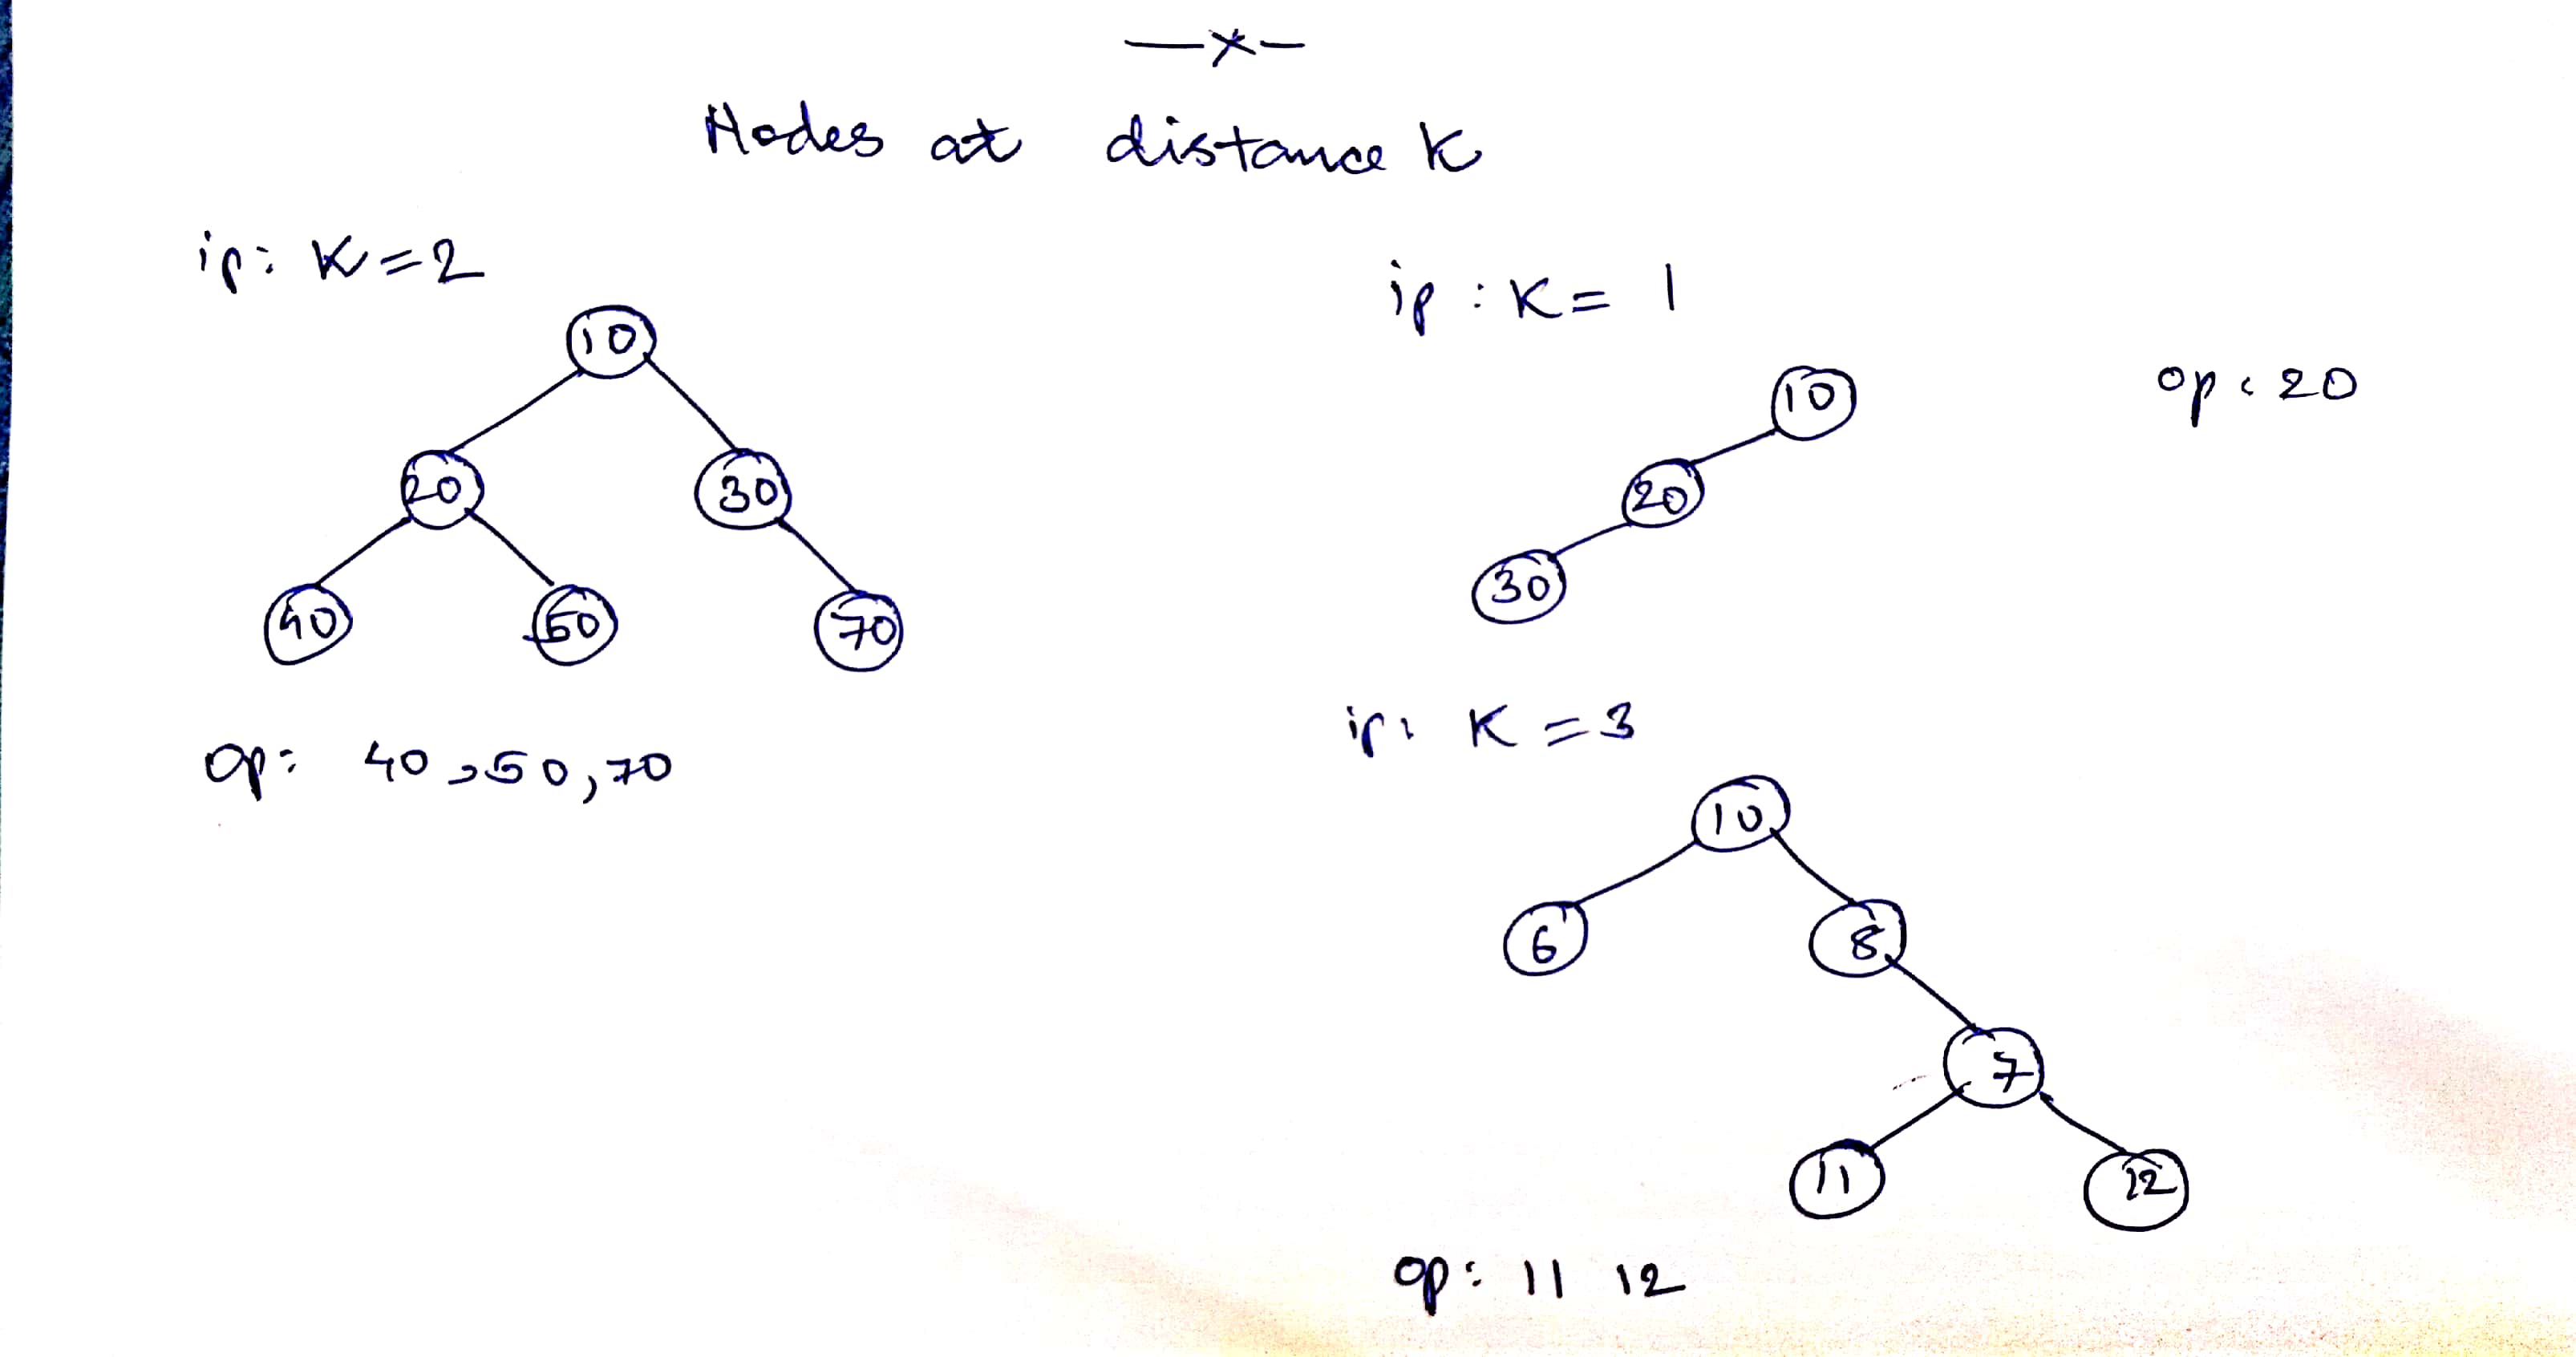 —x—
Nodes at distance K
ip: K=2
10
20 30
40 50 70
op: 40,50,70
ip: K= 1
10
20
30
op: 20
ip: K=3
10
6 8
7
11 12
op: 11 12